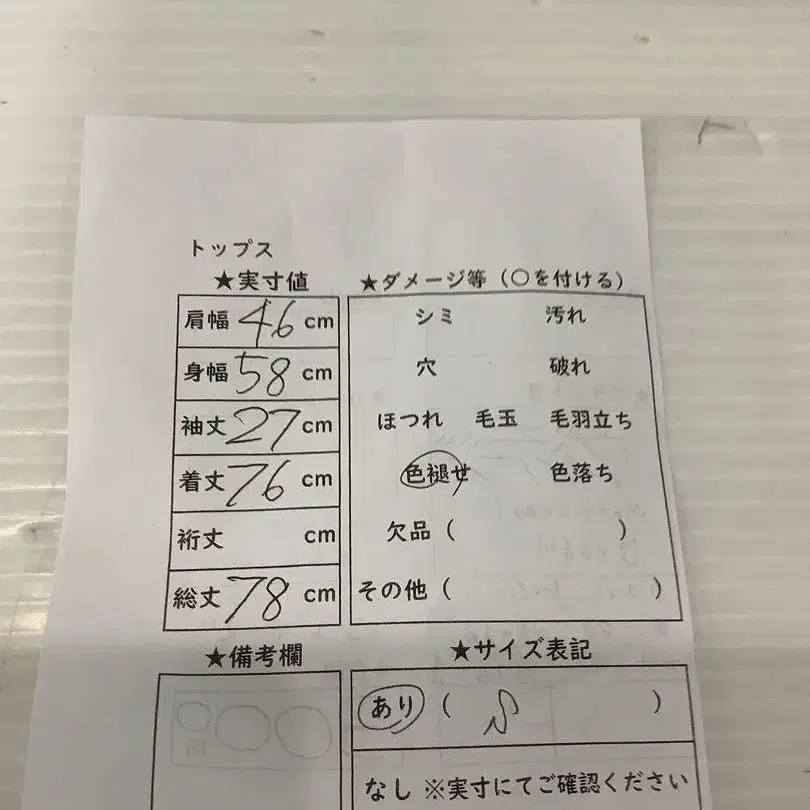 トップス
★実寸値
肩幅 46 cm
身幅 58 cm
袖丈 27 cm
着丈 76 cm
裄丈 cm
総丈 78 cm
★ダメージ等（○を付ける）
シミ 汚れ
穴 破れ
ほつれ 毛玉 毛羽立ち
色褪せ 色落ち
欠品（ ）
その他（ ）
★備考欄
★サイズ表記
あり（ S ）
なし ※実寸にてご確認ください